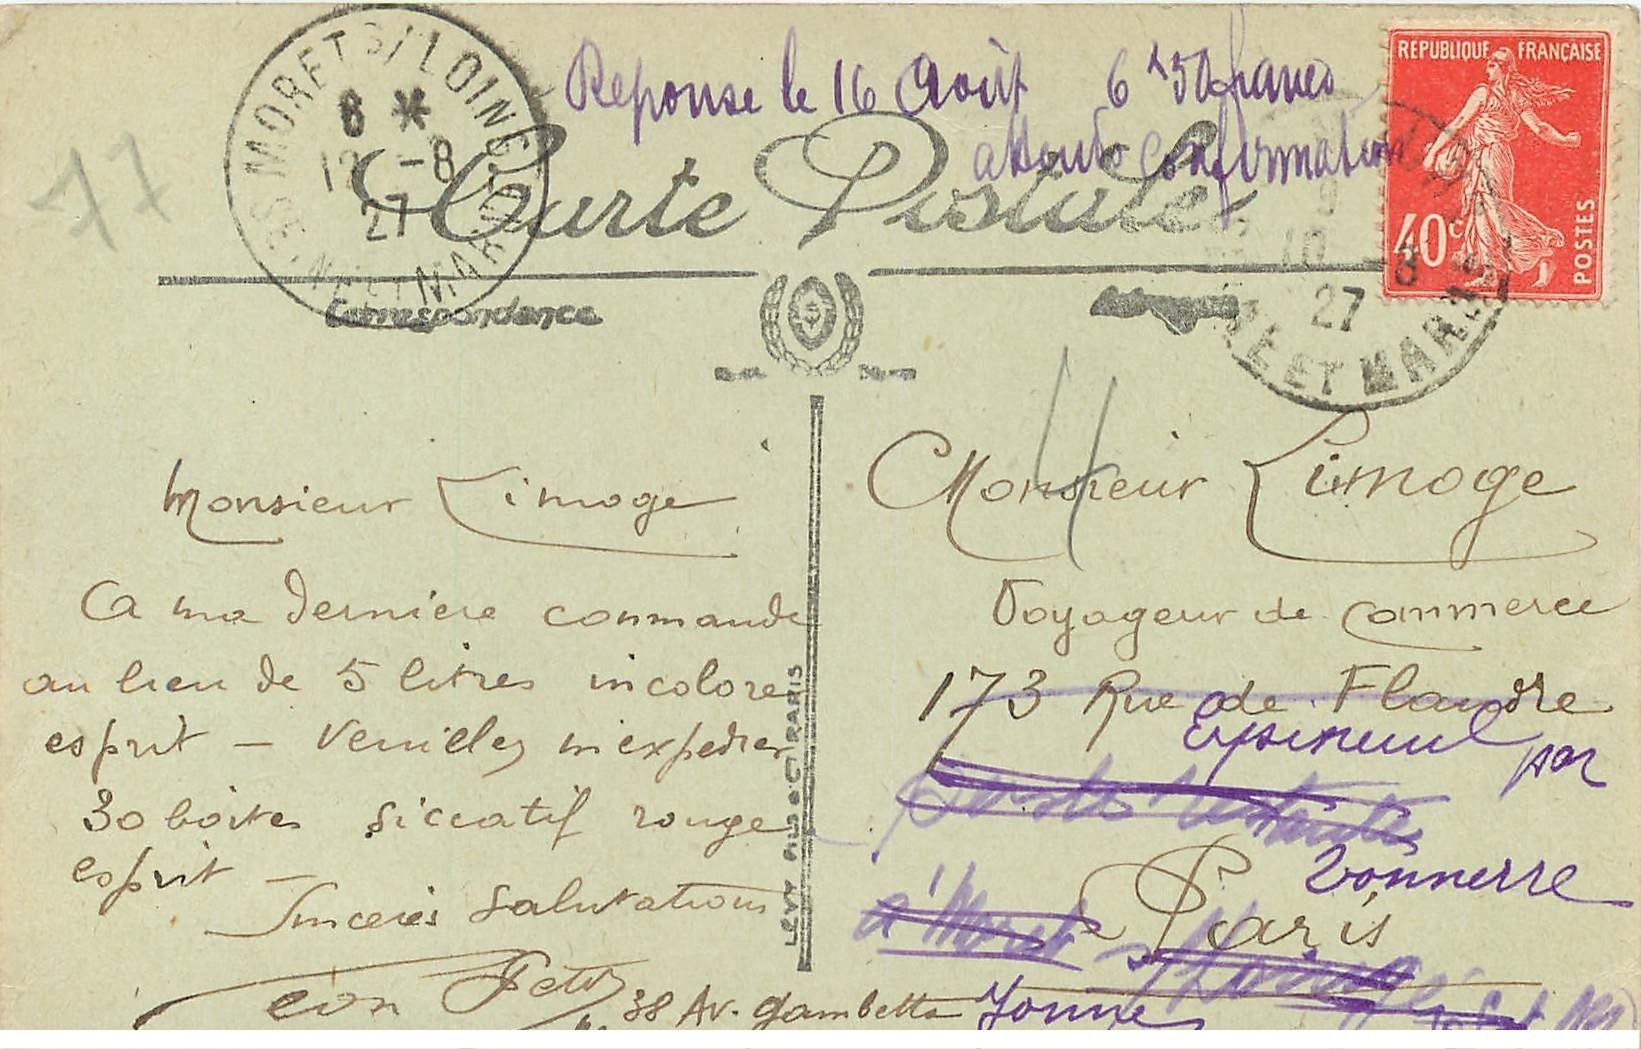 Reponse le 16 Août 6 f 50 francs
attends confirmation
MORET S/ LOING
SEINE ET MARNE
8 *
12 -8
27
RÉPUBLIQUE FRANÇAISE
40c
POSTES
10 -8
27
NE ET MARNE
Carte Postale
Correspondance
Adresse
77
Monsieur Limoge
A ma dernière commande
au lieu de 5 litres incolore
esprit — Veuillez m'expedier
30 boites siccatif rouge
esprit —
Sincères Salutations
38 Av. Gambetta
LEVY FILS & Cie PARIS
Monsieur Limoge
Voyageur de Commerce
173 Rue de Flandre
Epineuil par
Tonnerre
Paris
à Moret s/ Loing
Yonne